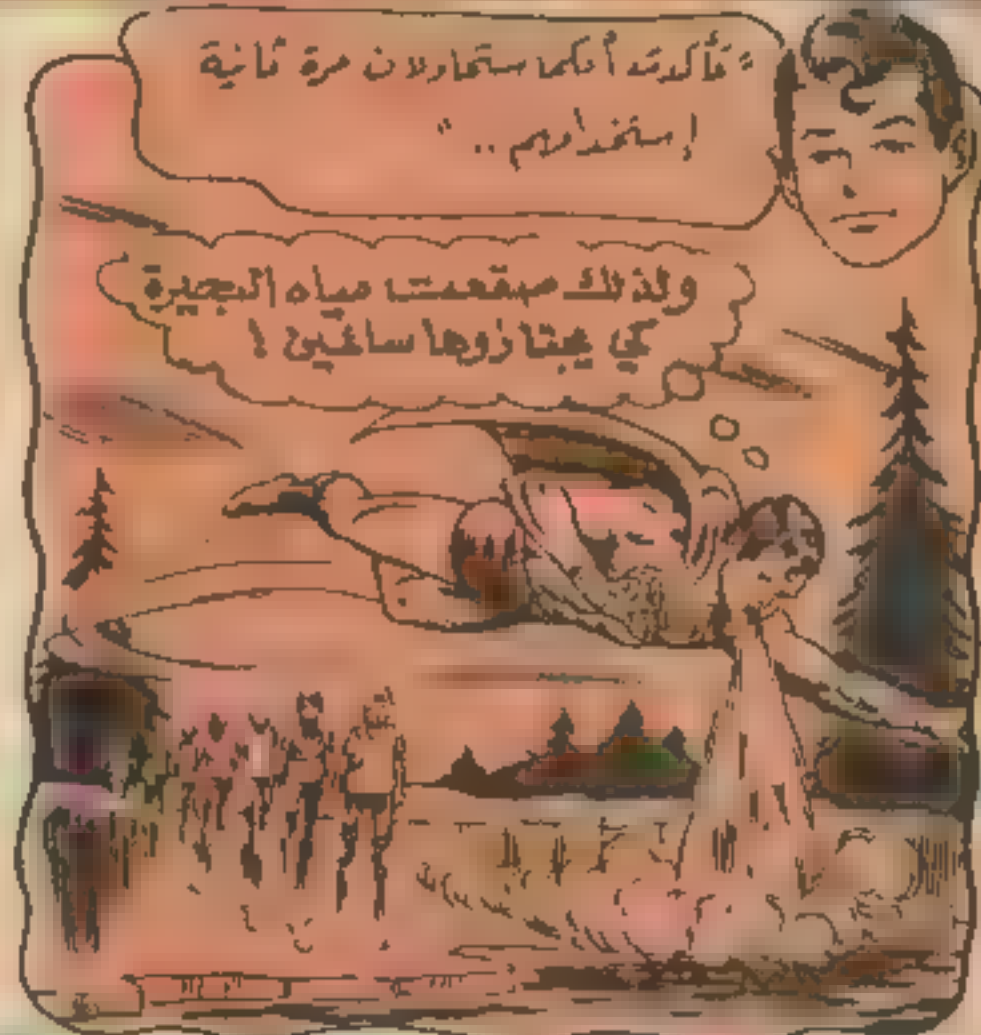 "تأكدت أنكما ستحاولان مرة ثانية
إستخدامهم .."
ولذلك صقعت مياه البحيرة
كي يجتازوها سالمين !